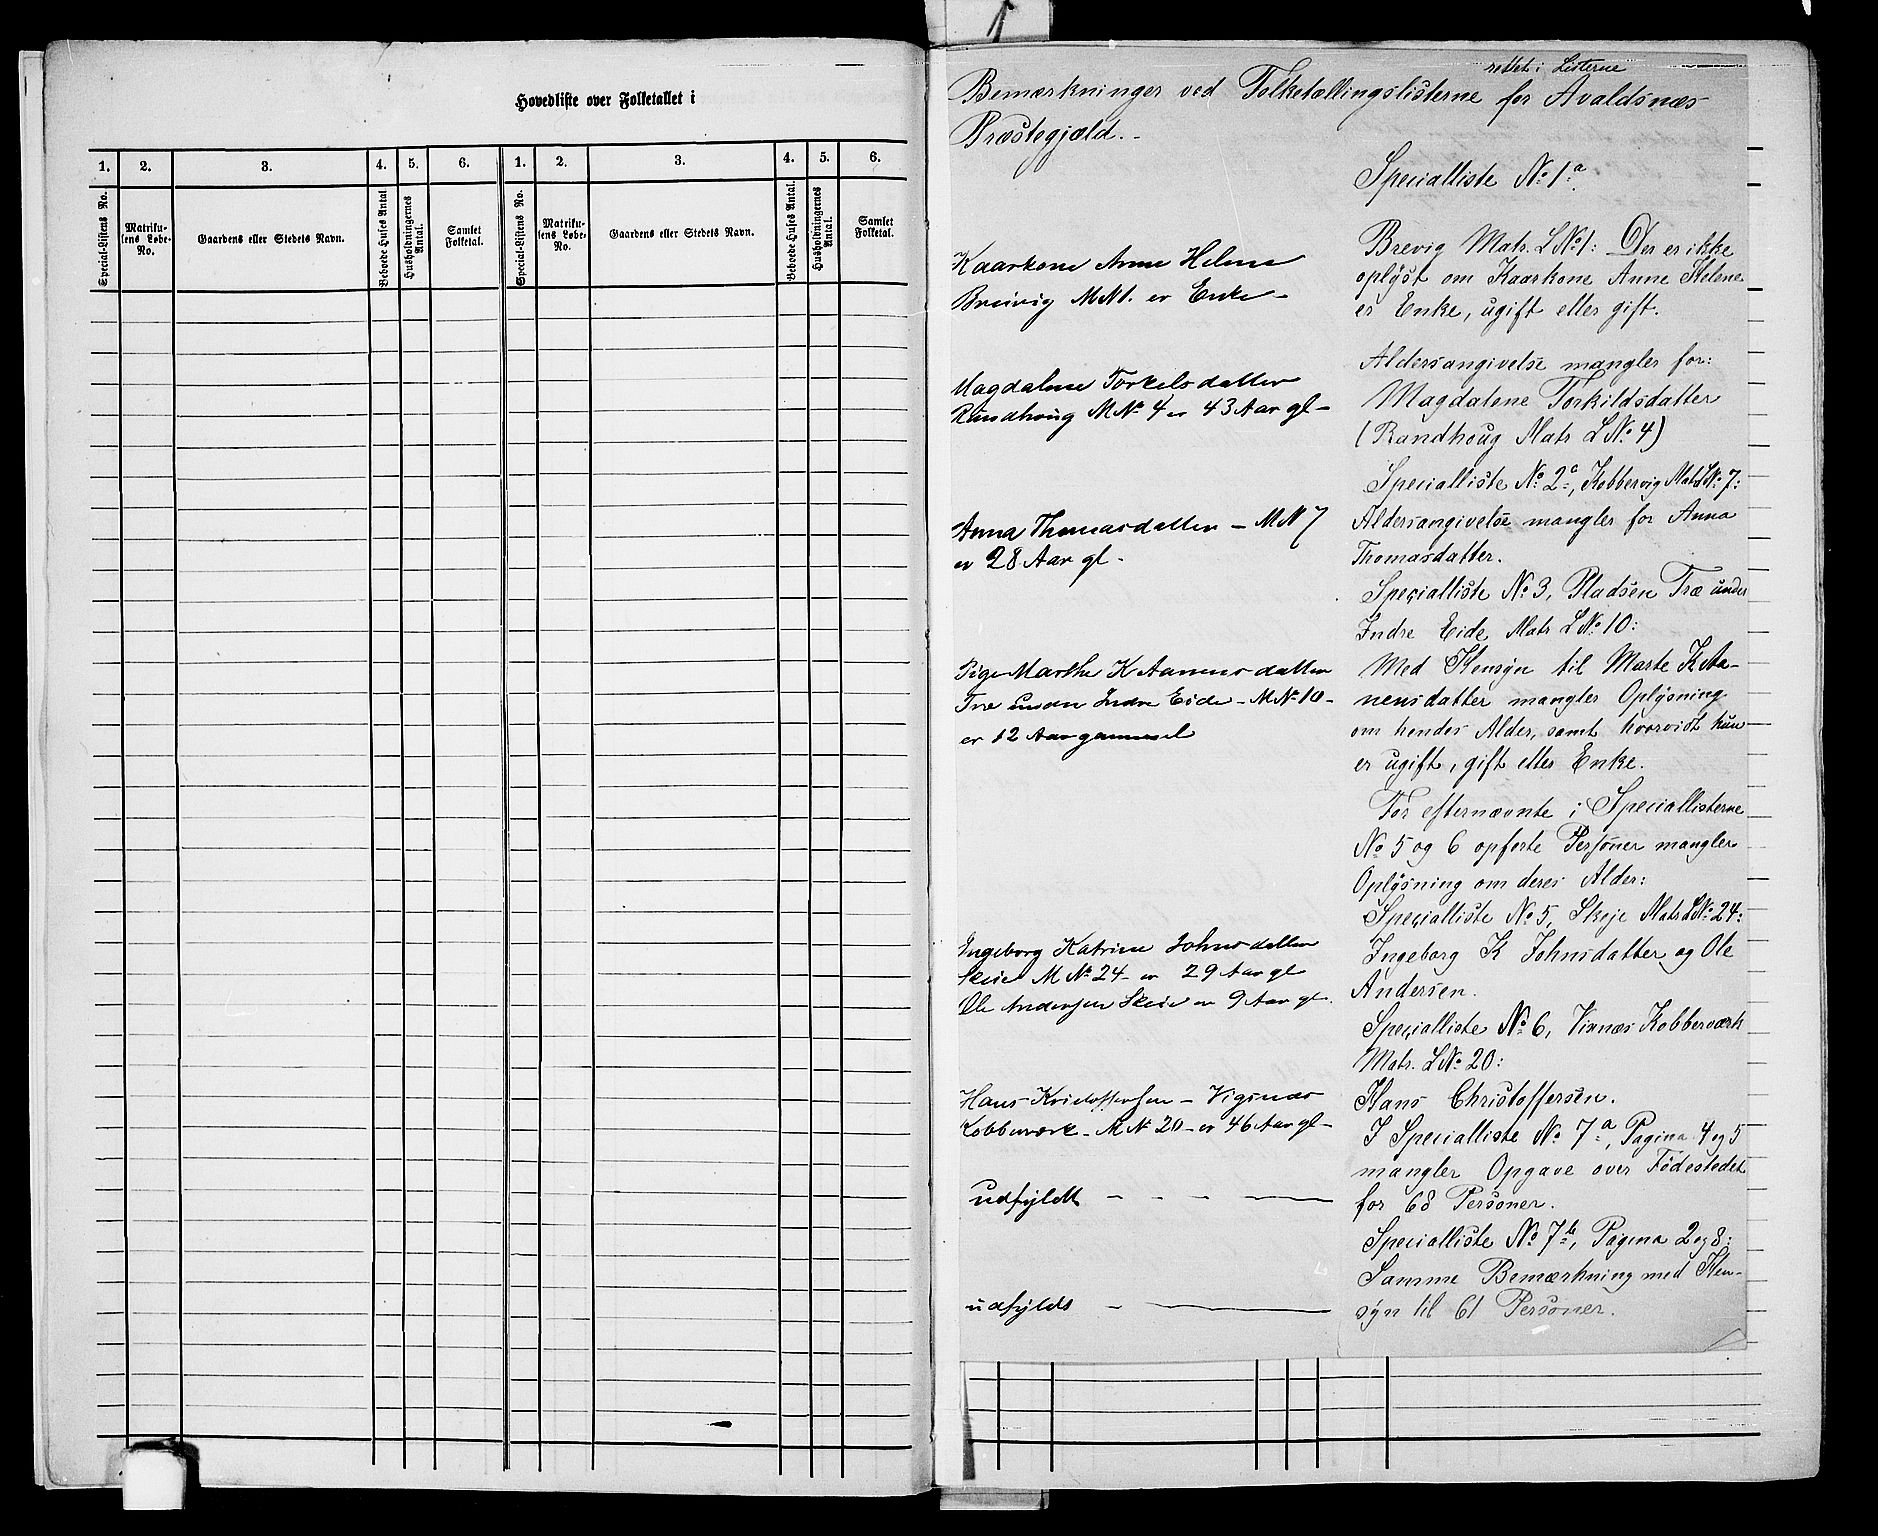 Hovedliste over Folketallet i
1. 2. 3. 4. 5. 6. 1. 2. 3. 4. 5. 6.
Special-Listens No.
Matriku-
lens Løbe-
No.
Gaardens eller Stedets Navn.
Beboede Huses Antal.
Husholdningernes
Antal.
Samlet
Folketal.
Special-Listens No.
Matriku-
lens Løbe-
No.
Gaardens eller Stedets Navn.
Beboede Huses Antal.
Husholdningernes
Antal.
Samlet
Folketal.
rettet i Listerne
Bemærkninger ved Folketællingslisterne for Avaldsnæs
Præstegjæld.
Specialliste No 1a.
Kaarkone Anne Helene
Breivig M N 1. er Enke -
Brevig Matr. L No 1: Der er ikke
oplyst om Kaarkone Anne Helene
er Enke, ugift eller gift.
Magdalene Torkelsdatter
Randhoug M No 4 er 43 Aar gl -
Aldersangivelse mangler for:
Magdalene Torkildsdatter
(Randhoug Matr L No 4)
Specialliste No 2a, Kobbervig Matr L No 7:
Anna Thomasdatter - M N 7
er 28 Aar gl -
Aldersangivelse mangler for Anna
Thomasdatter.
Specialliste No 3, Pladsen Træ under
Indre Eide Matr L No 10:
Pige Marthe K Aanensdatter
Træ under Indre Eide - M No 10 -
er 12 Aar gammel
Med Hensyn til Marte K Aa-
nensdatter mangler Oplysning
om hendes Alder, samt hvorvidt hun
er ugift, gift eller Enke.
For efternævnte i Speciallisterne
No 5 og 6 opførte Personer mangler
Oplysning om deres Alder:
Specialliste No 5, Skeje Matr L No 24:
Ingeborg Katrine Johnsdatter
Skeie M No 24 - er 29 Aar gl
Ole Andersen Skeie er 9 Aar gl.
Ingeborg K Johnsdatter og Ole
Andersen.
Specialliste No 6, Visnæs Kobberværk
Matr. L No 20:
Hans Kristoffersen - Vigsnæs
Kobberværk - M No 20 - er 46 Aar gl -
Hans Christoffersen.
I Specialliste No 7a, Pagina 4 og 5
mangler Opgave over Fødestedet
for 68 Personer.
udfyldt
Specialliste No 7b, Pagina 2 og 8:
Samme Bemærkning med Hen-
syn til 61 Personer.
udfyldt